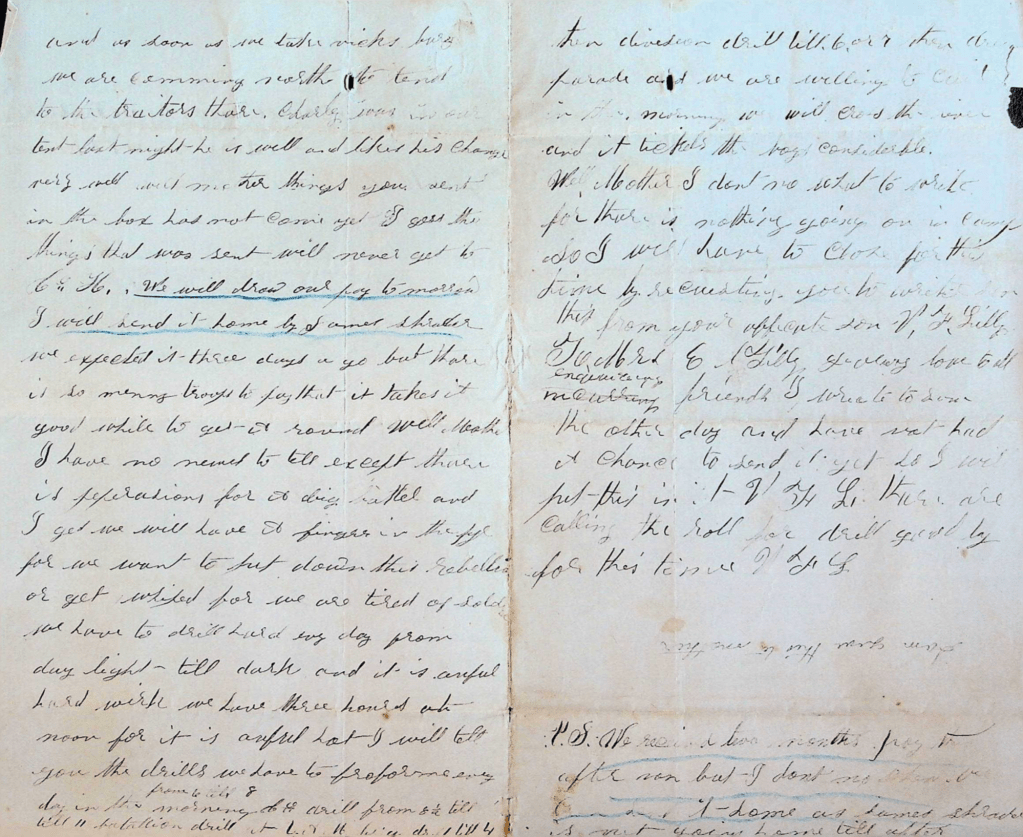 and as soon as we take vicks burg
we are comming north to tend
to the traitors thare. Charley was in our
tent last night he is well and likes his change
very well well mother things you sent
in the box has not come yet I gess the
things that was sent will never get to
Co H.. We will draw our pay to morrow
I will send it home by James shrader
we expected it three days a go but thare
is so menny troops to pay that it takes it
good while to get it round Well Mother
I have no news to tell except thare
is preperations for a big battel and
I get we will have a finger in the pye
for we want to put down this rebellion
or get whiped for we are tired of
we have to drill hard evy day from
day light till dark and it is awful
hard work we have three hours at
noon for it is awful hot I will tell
you the drills we have to proforme every
from till 8
day in the morning drill from till
till 11 batallion drill
then division drill till 6 then
parade and we are willing to
in the morning we will cross the river
and it tickels the boys considerble.
Well Mother I dont no what to write
for thare is nothing going on in camp
So I will have to close for this
time by requesting you to write
this from your affecnate son V, F, Lilly
To Mrs E A Lilly giveing love to all
enquireing
friends I wrote to Sam
the other day and have not had
a chance to send it yet so I will
put this in it V F L. thare are
calling the roll for drill good by
for this time V F L
Sam give this to mother
P.S. We received two months pay
after non but I dont no
it home as James shrader
is not going home till after